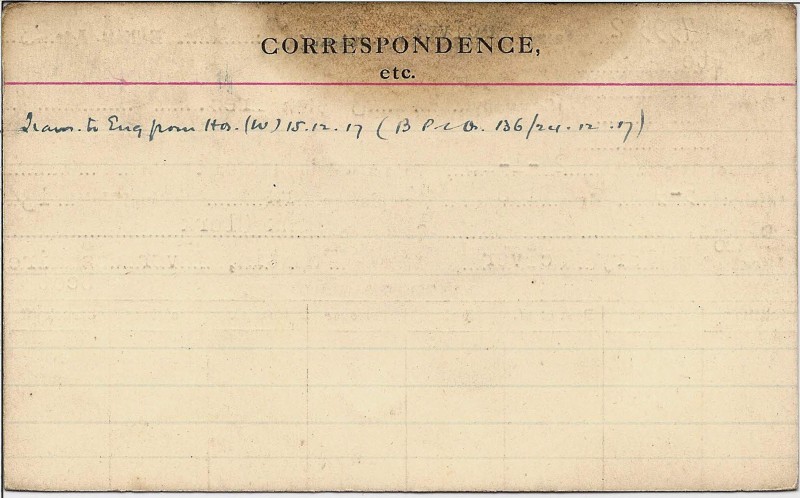 CORRESPONDENCE,
etc.
Trans. to Eng from Hos. (W) 15.12.17 (B P 136/24.12.17)